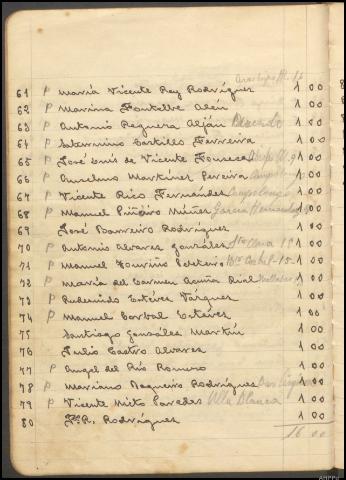 61 P María Vicente Rey Rodríguez 1 00
62 P Marina Fontelve Aleu 1 00
63 P Antonio Reguera Alján 1 00
64 P Saturnino Castillo Ferreira 1 00
65 P José Luis de Vicente Fonseca 1 00
66 P Aurelino Martínez Pereira 1 00
67 P Vicente Rico Fernández Campolongo 1 00
68 P Manuel Piñeiro Núñez García Hernández 1 00
69 José Barreiro Rodríguez 1 00
70 P Antonio Alvarez González Sta Clara 1 00
71 P Manuel 1 00
72 P María del Carmen Acuña Rial 1 00
73 P Rudesindo Esteves Vázquez 1 00
74 P Manuel Corbal Esteves 1 00
75 Santiago González Martín 1 00
76 Julio Castro Alvarez 1 00
77 P Angel del Río Romero 1 00
78 P Mariano Rodríguez 1 00
79 P Vicente Nieto Paredes Villa Blanca 1 00
80 Rodríguez 1 00
16 00